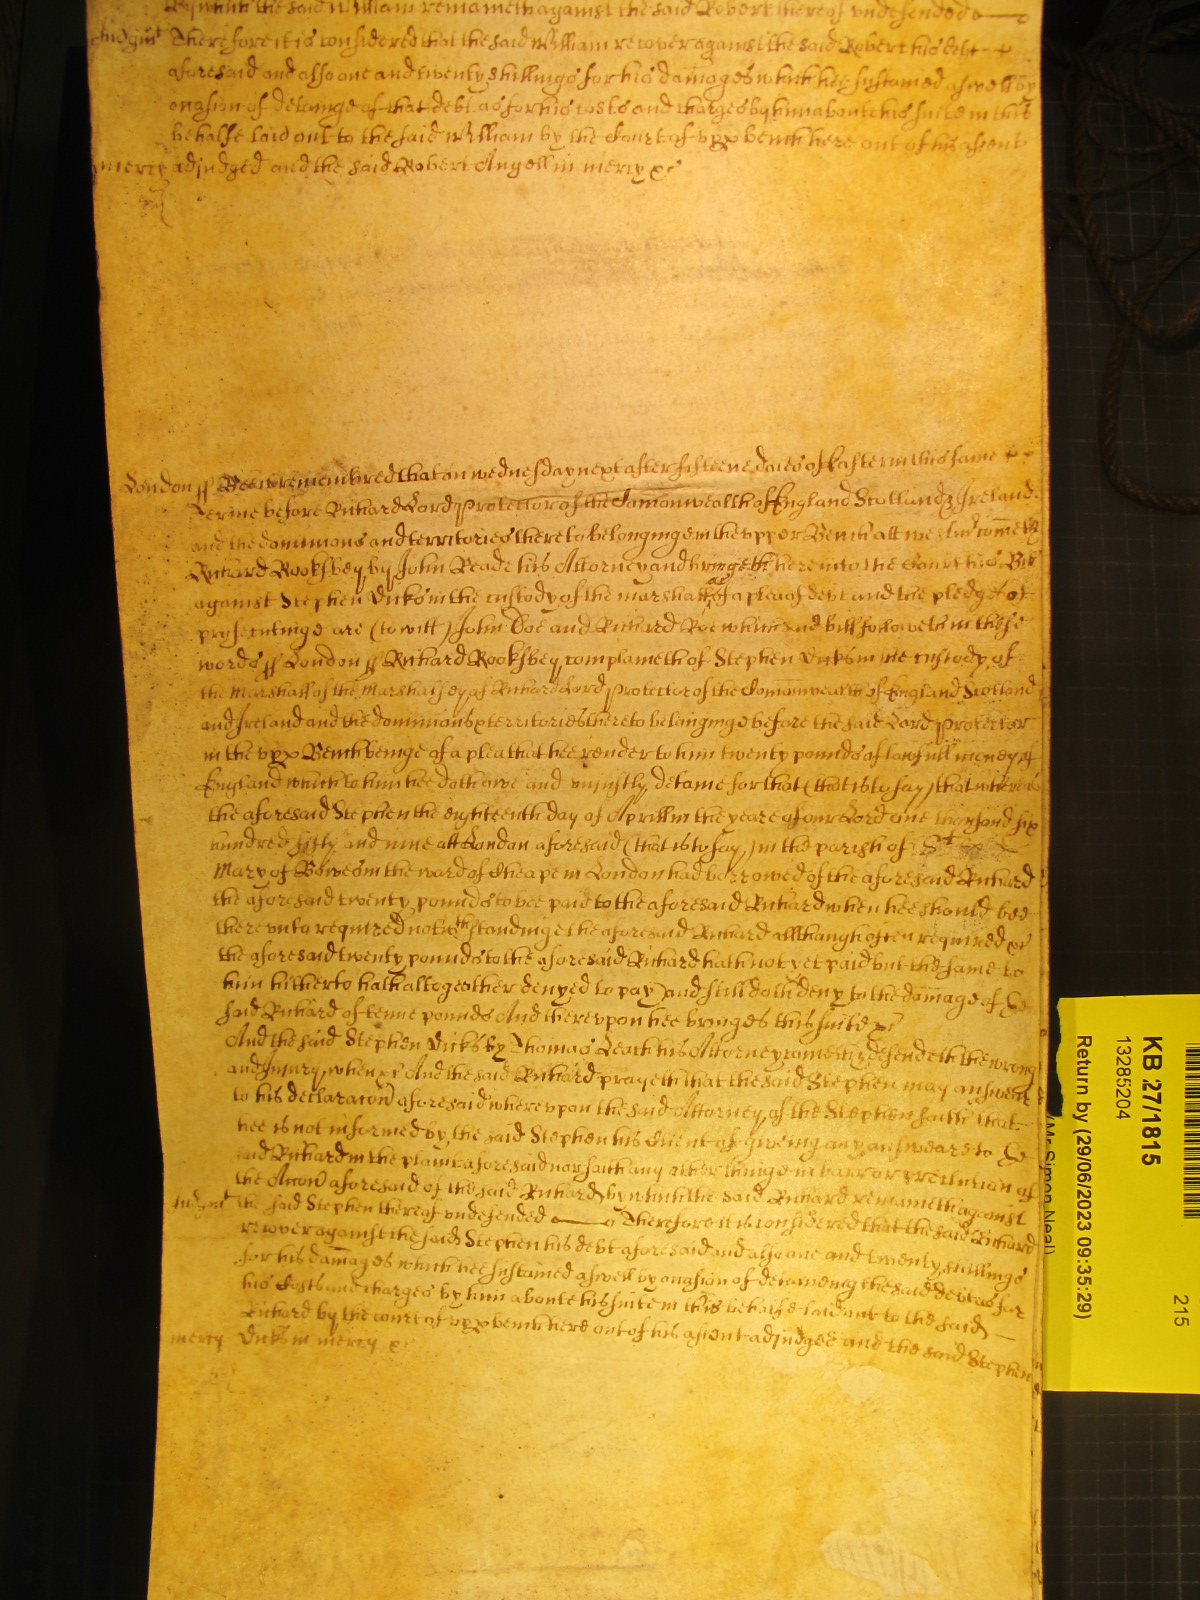 the said William remaineth against the said Robert thereof undefended
Judgmt Therefore it is considered that the said William recover against the said Robert his debt
aforesaid and also one and twenty shillings for his damages which hee sustained aswell by
occasion of deteininge of that debt as for his costs and charges by him aboute his suite in this
behalfe laid out to the said William by the Court of vpp bench here out of his assent
mercy adjudged and the said Robert Angell in mercy &c
London ss Bee it remembred that on wednesday next after fifteene daies of Easter in this same
Terme before Richard Lord Protector of the Comonwealth of England Scotland & Ireland
and the dominions and territories thereto belonginge in the vpper Bench att westmr cometh
Richard Rooksbey by John Reade his Attorney and bringeth here into the Court his Bill
against Stephen Dicks in the custody of the marshall &c of a plea of debt and the pledges of
prosecutinge are (to witt) John Doe and Richard Roe which said bill followeth in these
words ss London ss Richard Rooksbey complaineth of Stephen Dicks in the custody of
the Marshall of the Marshalsey of Richard Lord Protector of the Comonwealth of England Scotland
and Ireland and the dominions & territories thereto belonginge before the said Lord Protector
in the vpp Bench beinge of a plea that hee render to him twenty pounds of lawfull money of
England which to him hee doth owe and vniustly detaine for that (that is to say) that whereas
the aforesaid Stephen the eighteenth day of Aprill in the yeare of our Lord one thousand six
hundred fifty and nine att London aforesaid (that is to say) in the parish of St
Mary of Bowes in the ward of Cheape in London had borrowed of the aforesaid Richard
the aforesaid twenty pounds to bee paid to the aforesaid Richard when hee should bee
therevnto required notwthstandinge the aforesaid Richard allthough often required &c
the aforesaid twenty pounds to the aforesaid Richard hath not yet paid but the same to
him hitherto hath altogeather denyed to pay and still doth deny to the damage of ye
said Richard of tenne pounds And therevpon hee bringes this suite &c
And the said Stephen Dicks by Thomas Leach his Attorney cometh & defendeth the wrong
and Iniury when &c And the said Richard prayeth that the said Stephen may answeare
to his declaracon aforesaid wherevpon the said Attorney of the Stephen saith that
hee is not informed by the said Stephen his Client of giveing any answeare to ye
said Richard in the plaint aforesaid nor saith any other thinge in barr or preclusion of
the Accon aforesaid of the said Richard by which the said Richard remaineth against
Judgmt the said Stephen thereof vndefended Therefore it is considered that the said Richard
recover against the said Stephen his debt aforesaid and also one and twenty shillings
for his damages which hee sustained aswell by occasion of deteineing the said debt as for
his Costs and charges by him aboute his suite in this behalfe laid out to the said
Richard by the court of vpp bench here out of his assent adjudged and the said Stephen
mercy Dicks in mercy &c
KB 27/1815
13285204
215
Return by (29/06/2023 09:35:29)
(Mr Simon Neal)